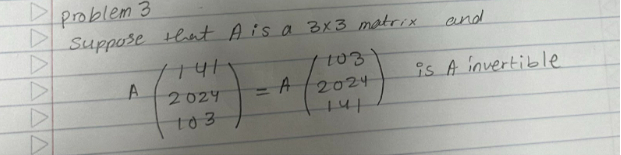 problem 3
suppose that A is a 3x3 matrix and
A (141 2024 103) = A (103 2024 141) is A invertible